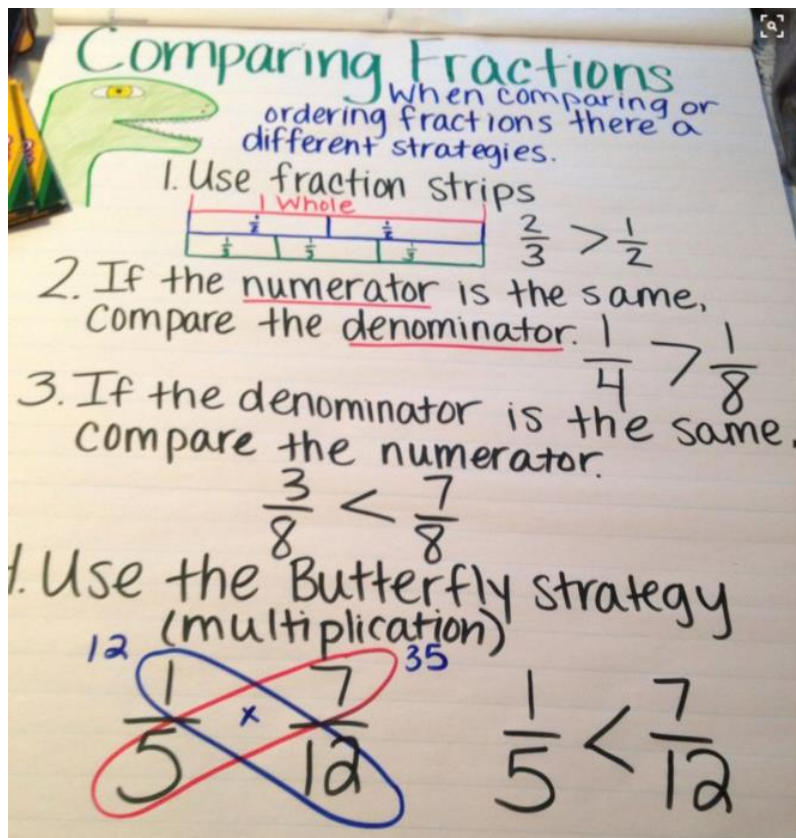 Comparing Fractions
When comparing or
ordering fractions there a
different strategies.
1. Use fraction strips
1 Whole
1/2 1/2
1/3 1/3 1/3
2/3 > 1/2
2. If the numerator is the same,
compare the denominator.
1/4 > 1/8
3. If the denominator is the same,
compare the numerator.
3/8 < 7/8
. Use the Butterfly strategy
(multiplication)
12 35
1/5 x 7/12
1/5 < 7/12